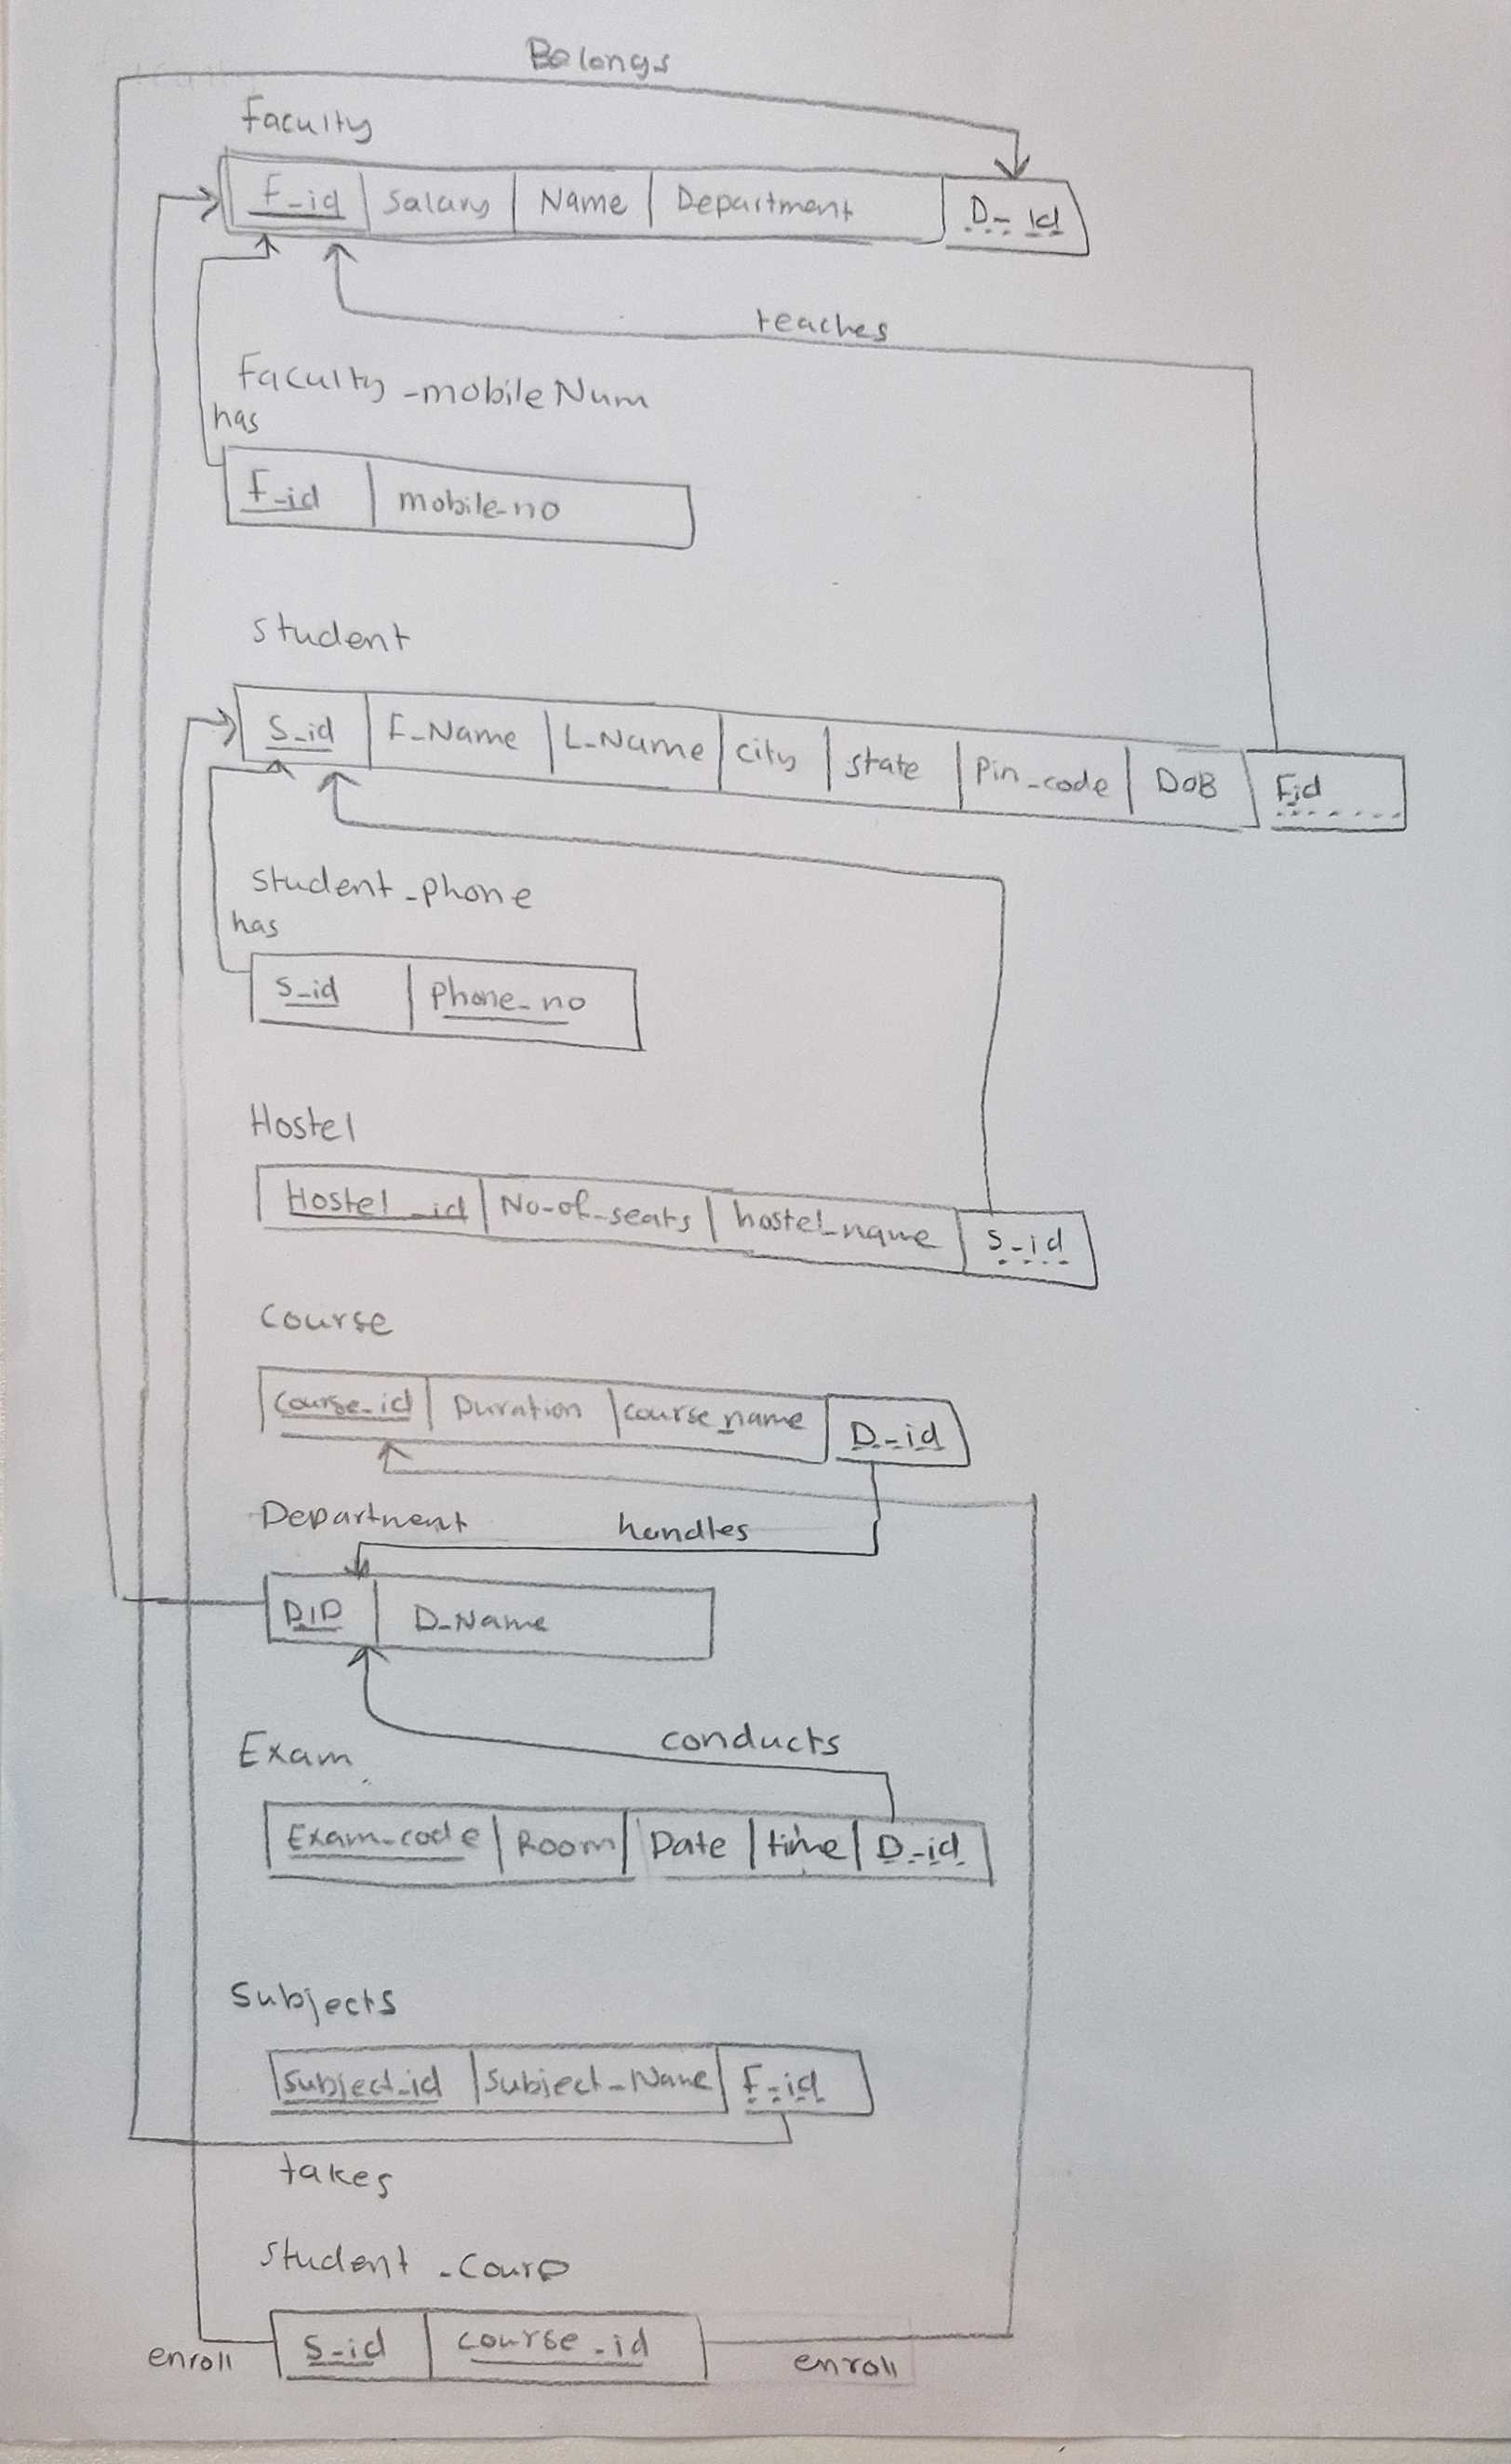 Belongs
Faculty
F_id Salary Name Department D_id
teaches
Faculty_mobileNum
has
F_id mobile_no
Student
S_id F_Name L_Name city state Pin_code DOB F_id
Student_phone
has
S_id Phone_no
Hostel
Hostel_id No_of_seats hostel_name S_id
Course
Course_id Duration course_name D_id
Department handles
DID D_Name
conducts
Exam
Exam_code Room Date time D_id
Subjects
Subject_id Subject_Name F_id
takes
Student
S_id course_id
enroll enroll